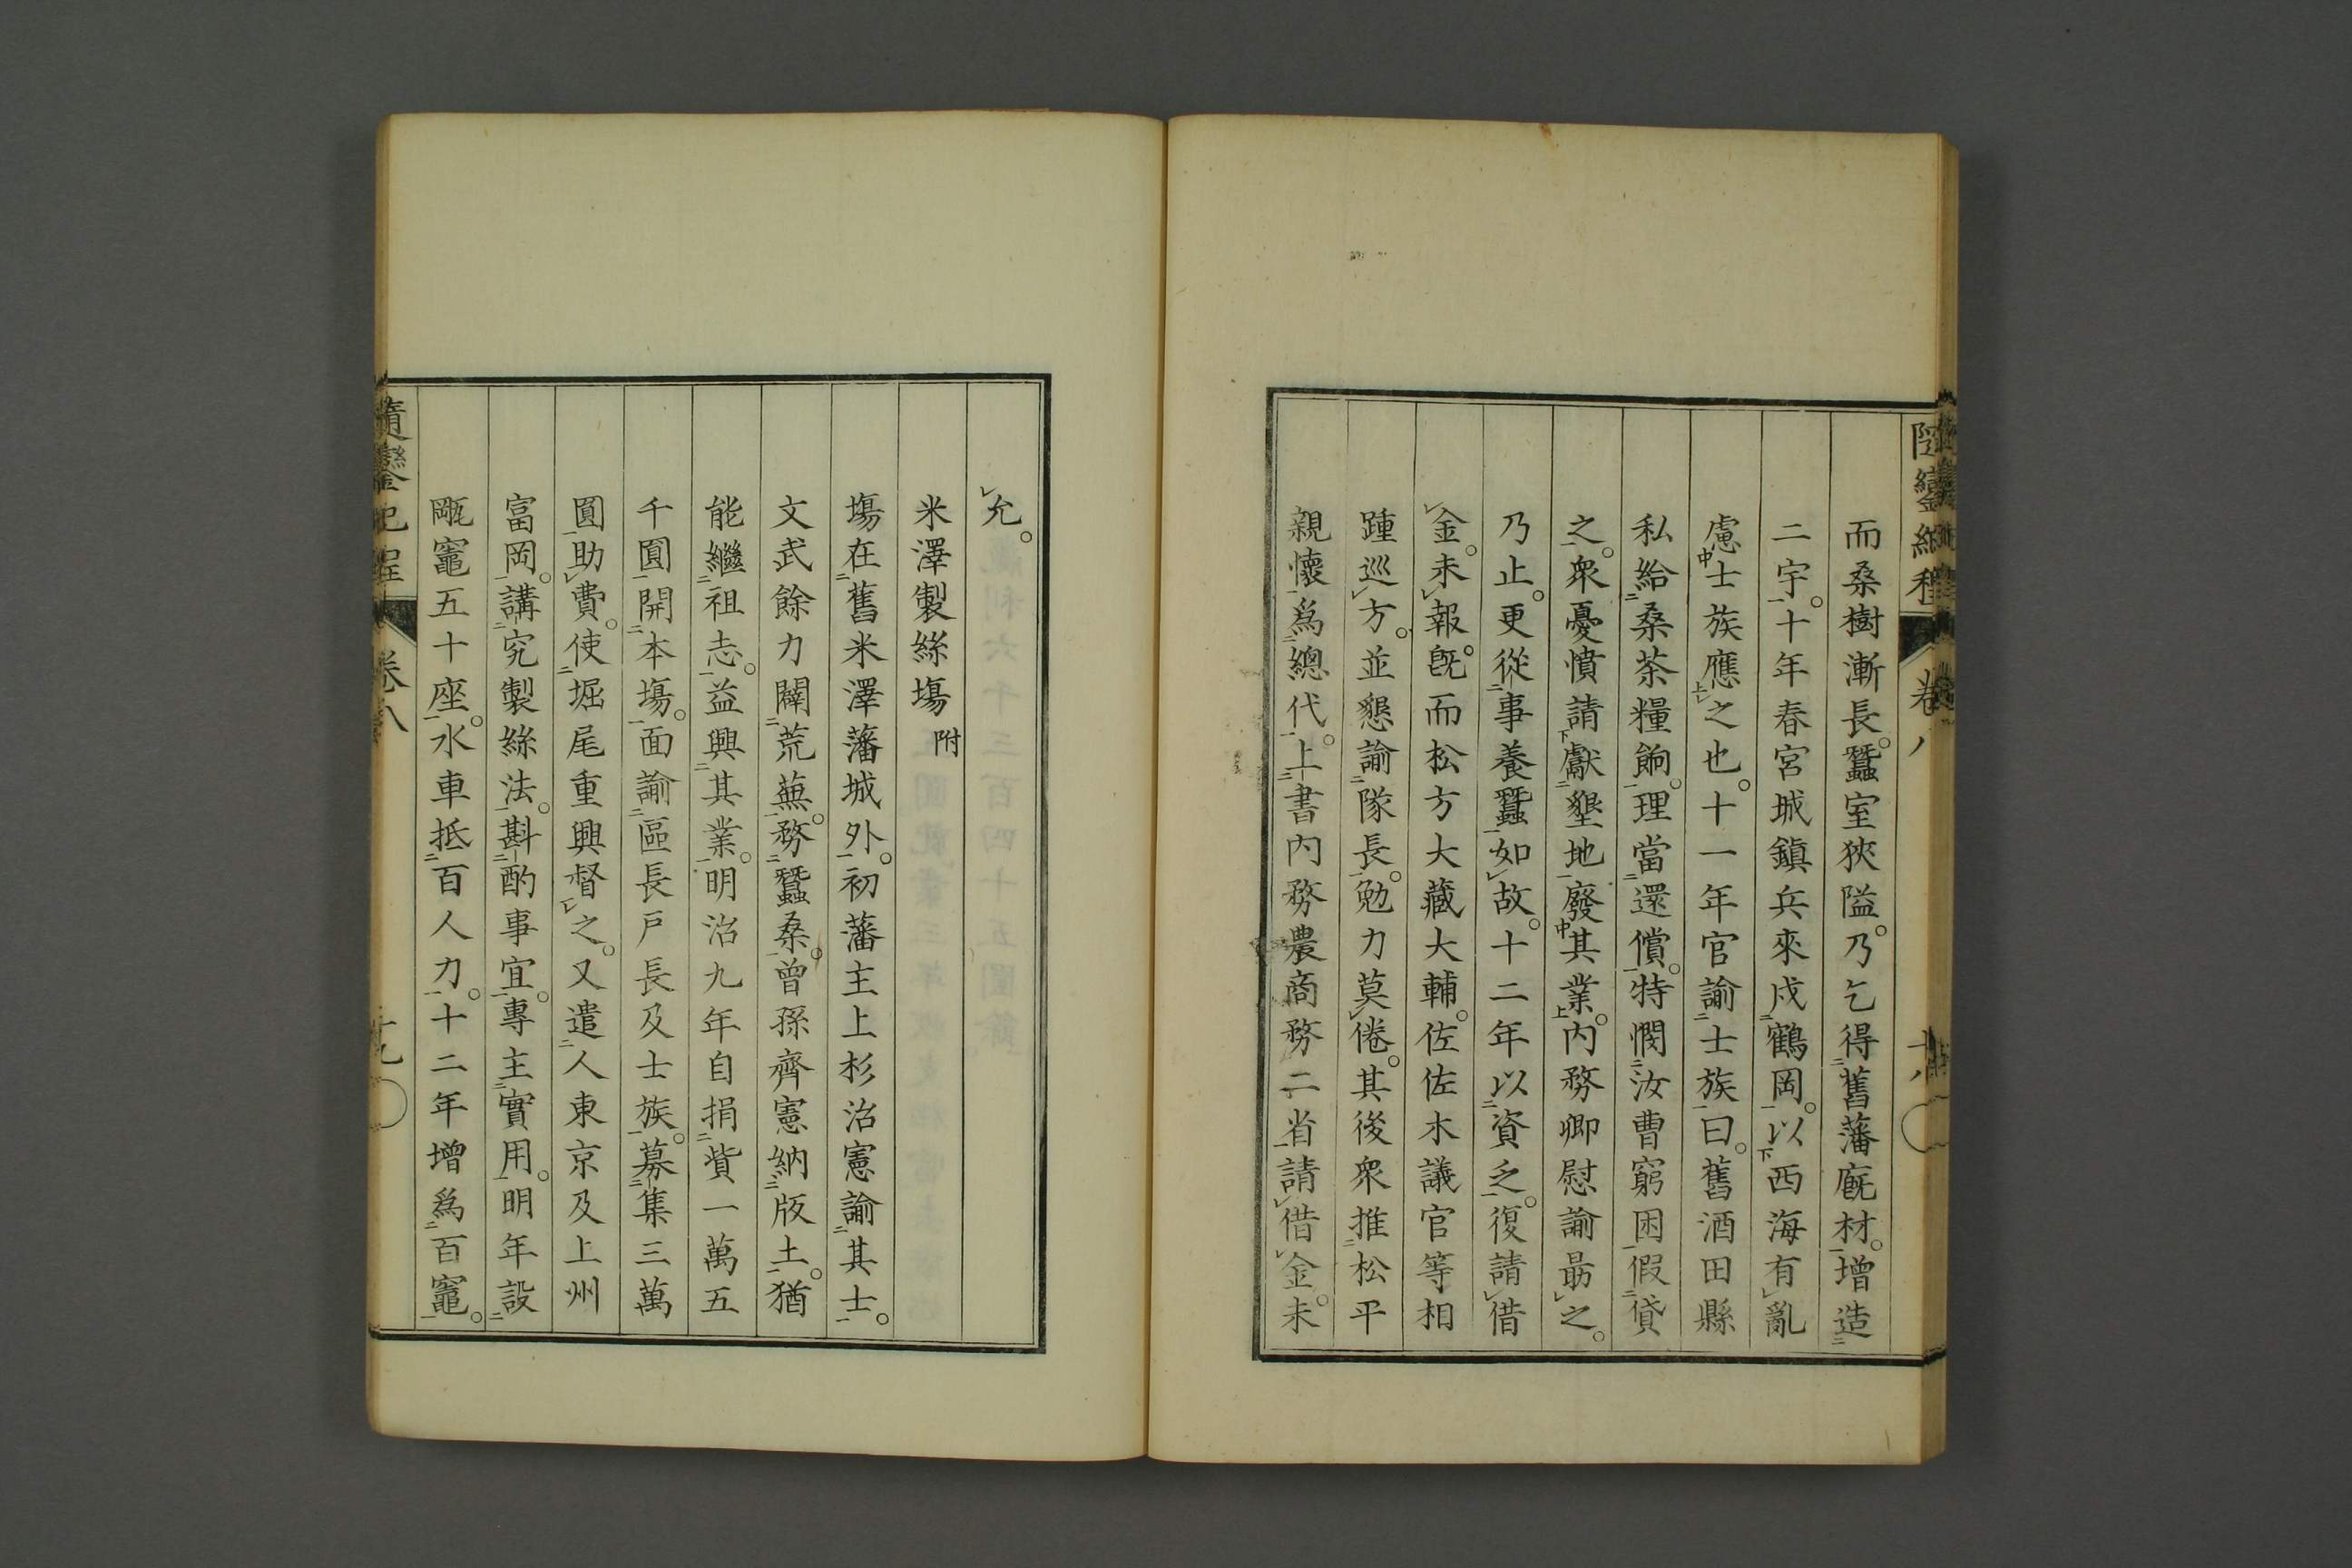 而桑樹漸長。蠶室狹隘。乃乞得舊藩廐材。增造
二宇。十年春宮城鎭兵來戍鶴岡。以西海有亂
慮士族應之也。十一年官諭士族曰。舊酒田縣
私給桑茶糧餉。理當還償。特憫汝曹窮困假貸
之。衆憂憤請獻墾地廢其業。內務卿慰諭勗之。
乃止。更從事養蠶如故。十二年以資乏。復請借
金。未報。旣而松方大藏大輔。佐佐木議官等相
踵巡方。並懇諭隊長。勉力莫倦。其後衆推松平
親懷爲總代。上書內務農商務二省請借金。未
允。
米澤製絲塲 附
塲在舊米澤藩城外。初藩主上杉治憲諭其士。
文武餘力闢荒蕪。務蠶桑。曾孫齊憲納版土。猶
能繼祖志。益興其業。明治九年自捐貲一萬五
千圓開本塲。面諭區長戶長及士族。募集三萬
圓助費。使堀尾重興督之。又遣人東京及上州
富岡。講究製絲法。斟酌事宜。專主實用。明年設
甌竈五十座。水車抵百人力。十二年增爲百竈。
隨鑾紀程 卷八